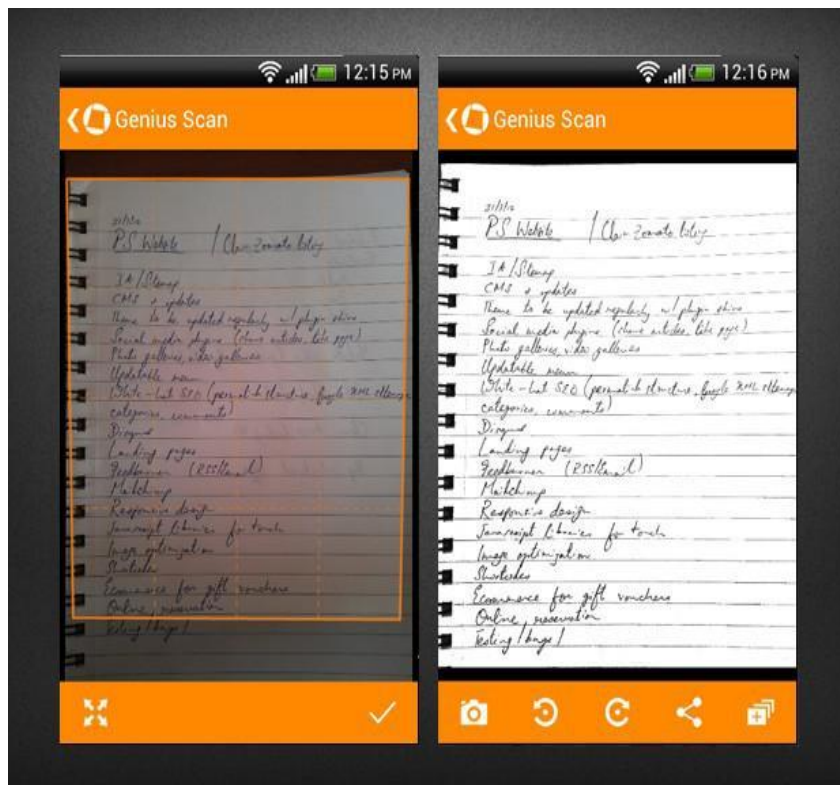 12:15 PM
Genius Scan
PS Website /
IA/Sitemap
CMS & updates
Theme to be updated regularly w/ plugin
Social media plugins (share articles, like page)
Photo galleries, video galleries
Updatable menu
White-hat SEO (permalink structure, google XML sitemap
categories, comments)
Disqus
Landing pages
Feedburner (RSS/Email)
Mailchimp
Responsive design
Javascript libraries for touch
Image optimization
Shortcodes
Ecommerce for gift vouchers
Online reservation
Testing / bugs /
12:16 PM
Genius Scan
PS Website /
IA/Sitemap
CMS & updates
Theme to be updated regularly w/ plugin
Social media plugins (share articles, like page)
Photo galleries, video galleries
Updatable menu
White-hat SEO (permalink structure, google XML sitemap
categories, comments)
Disqus
Landing pages
Feedburner (RSS/Email)
Mailchimp
Responsive design
Javascript libraries for touch
Image optimization
Shortcodes
Ecommerce for gift vouchers
Online reservation
Testing / bugs /